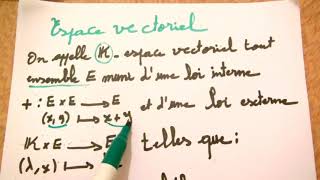 Espace vectoriel
On appelle K-espace vectoriel tout
ensemble E muni d'une loi interne
+ : E x E → E et d'une loi externe
(x,y) ↦ x+y
K x E → E telles que :
(λ,x) ↦